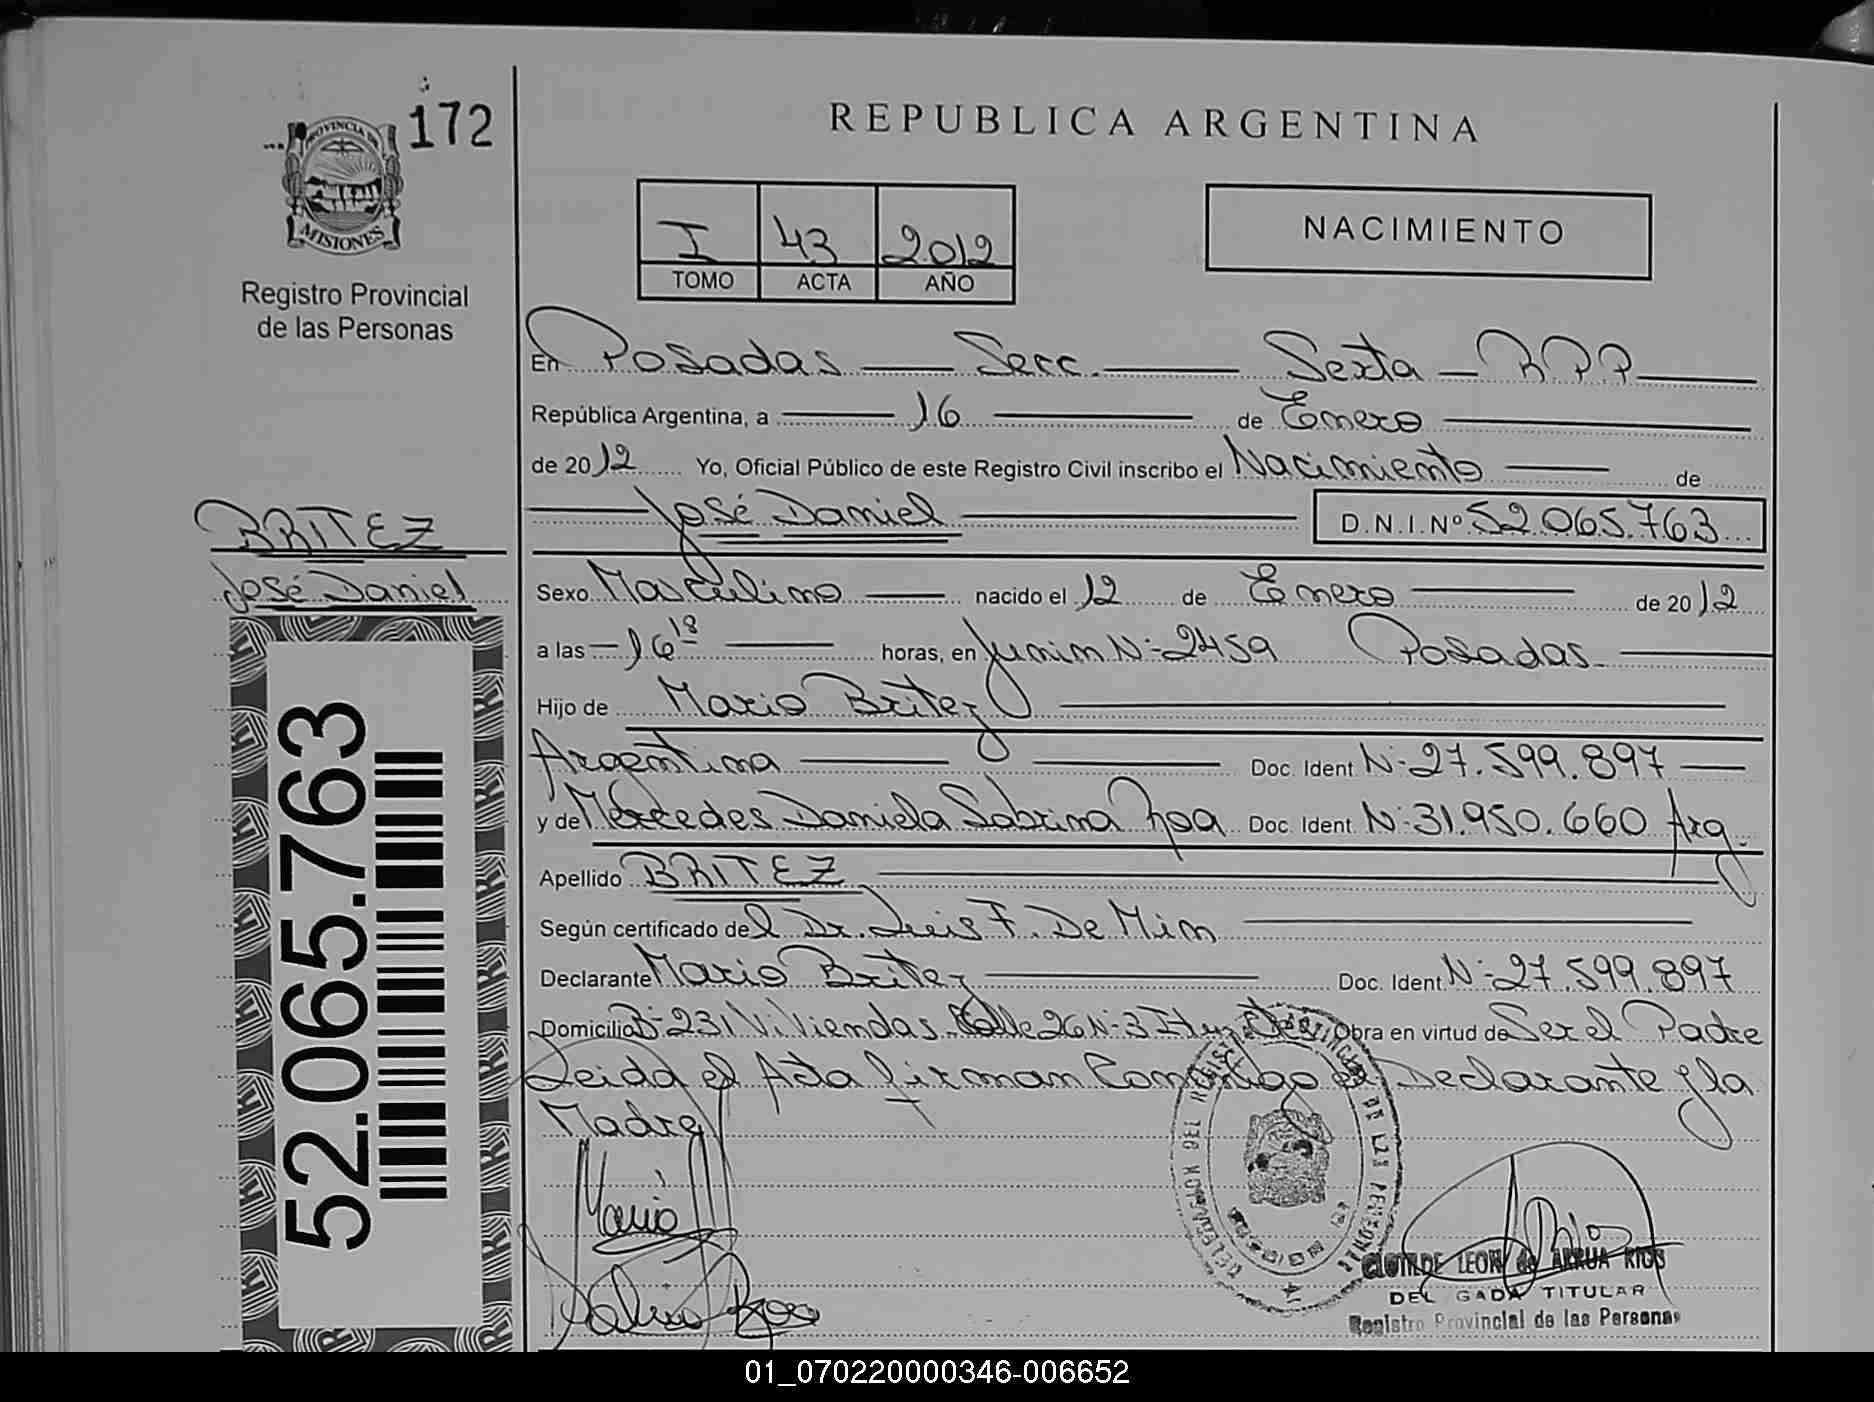 172
PROVINCIA DE
MISIONES
Registro Provincial
de las Personas
BRITEZ
José Daniel
52.065.763
REPUBLICA ARGENTINA
I 43 2.012
TOMO ACTA AÑO
NACIMIENTO
En Posadas Secc. Sexta - RPP
República Argentina, a 16 de Enero
de 2012 Yo, Oficial Público de este Registro Civil inscribo el Nacimiento de
José Daniel D.N.I.Nº 52.065.763
Sexo Masculino nacido el 12 de Enero de 2012
a las 16 18 horas, en Junin Nº 2459 Posadas
Hijo de Mario Britez
Argentina Doc. Ident Nº 27.599.897
y de Mercedes Daniela Sabrina Roa Doc. Ident. Nº 31.950.660 Arg.
Apellido BRITEZ
Según certificado del Dr. Luis F. De Mim
Declarante Mario Britez Doc. Ident. Nº 27.599.897
Domicilio Bº 231 Viviendas Calle 26 Nº 3 Obra en virtud de Ser el Padre
Leida el Acta firman Conmigo el Declarante y la
Madre
Mario
Roa
CLOTILDE LEON de ARRUA RIOS
DEL GADA TITULAR
Registro Provincial de las Personas
01_070220000346-006652